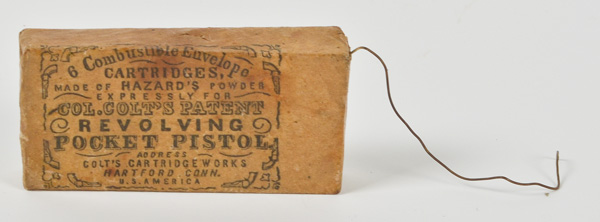 6 Combustible Envelope
CARTRIDGES,
MADE OF HAZARD'S POWDER
EXPRESSLY FOR
COL. COLT'S PATENT
REVOLVING
POCKET PISTOL
ADDRESS
COLT'S CARTRIDGE WORKS
HARTFORD CONN.
U.S. AMERICA